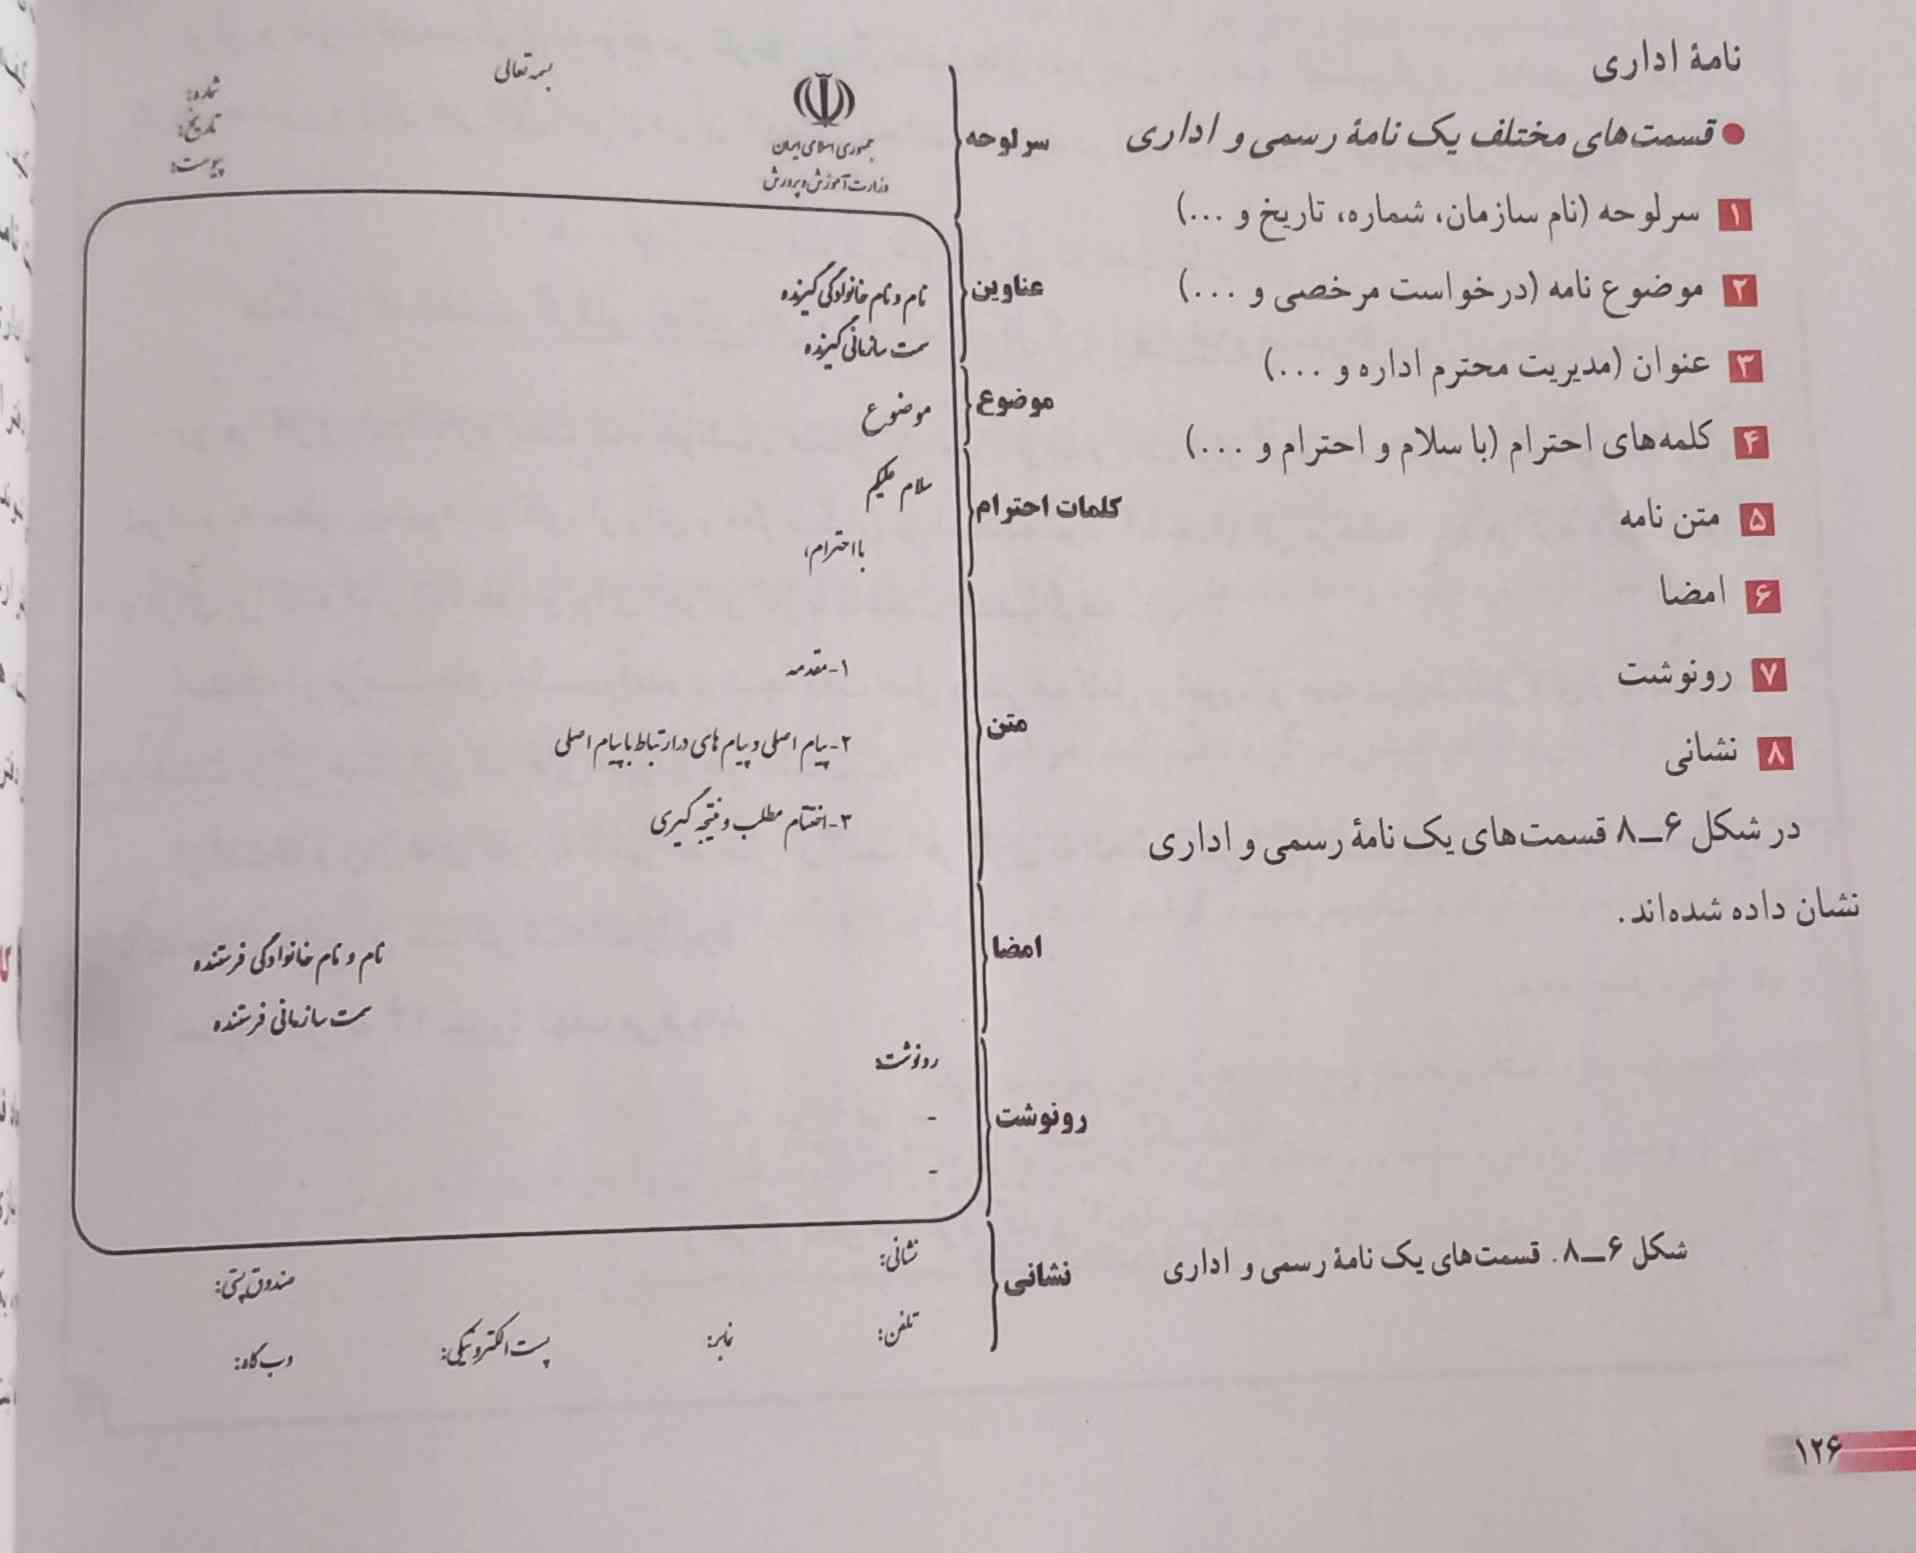 نامهٔ اداری
● قسمت‌های مختلف یک نامهٔ رسمی و اداری
۱ سرلوحه (نام سازمان، شماره، تاریخ و ...)
۲ موضوع نامه (درخواست مرخصی و ...)
۳ عنوان (مدیریت محترم اداره و ...)
۴ کلمه‌های احترام (با سلام و احترام و ...)
۵ متن نامه
۶ امضا
۷ رونوشت
۸ نشانی
در شکل ۶ــ۸ قسمت‌های یک نامهٔ رسمی و اداری
نشان داده شده‌اند.
شکل ۶ــ۸. قسمت‌های یک نامهٔ رسمی و اداری
سرلوحه
عناوین
موضوع
کلمات احترام
متن
امضا
رونوشت
نشانی
جمهوری اسلامی ایران
وزارت آموزش و پرورش
بسمه تعالی
شماره:
تاریخ:
پیوست:
نام و نام خانوادگی گیرنده
سمت سازمانی گیرنده
موضوع
سلام علیکم
با احترام،
۱-مقدمه
۲-پیام اصلی و پیام های در ارتباط با پیام اصلی
۳-اختتام مطلب و نتیجه گیری
نام و نام خانوادگی فرستنده
سمت سازمانی فرستنده
رونوشت:
-
-
نشانی:
صندوق پستی:
تلفن:
نمابر:
پست الکترونیکی:
وب گاه:
۱۲۶